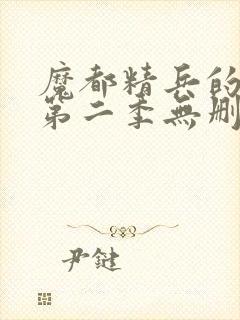 魔都精兵的
第二季無刪
尹鍵